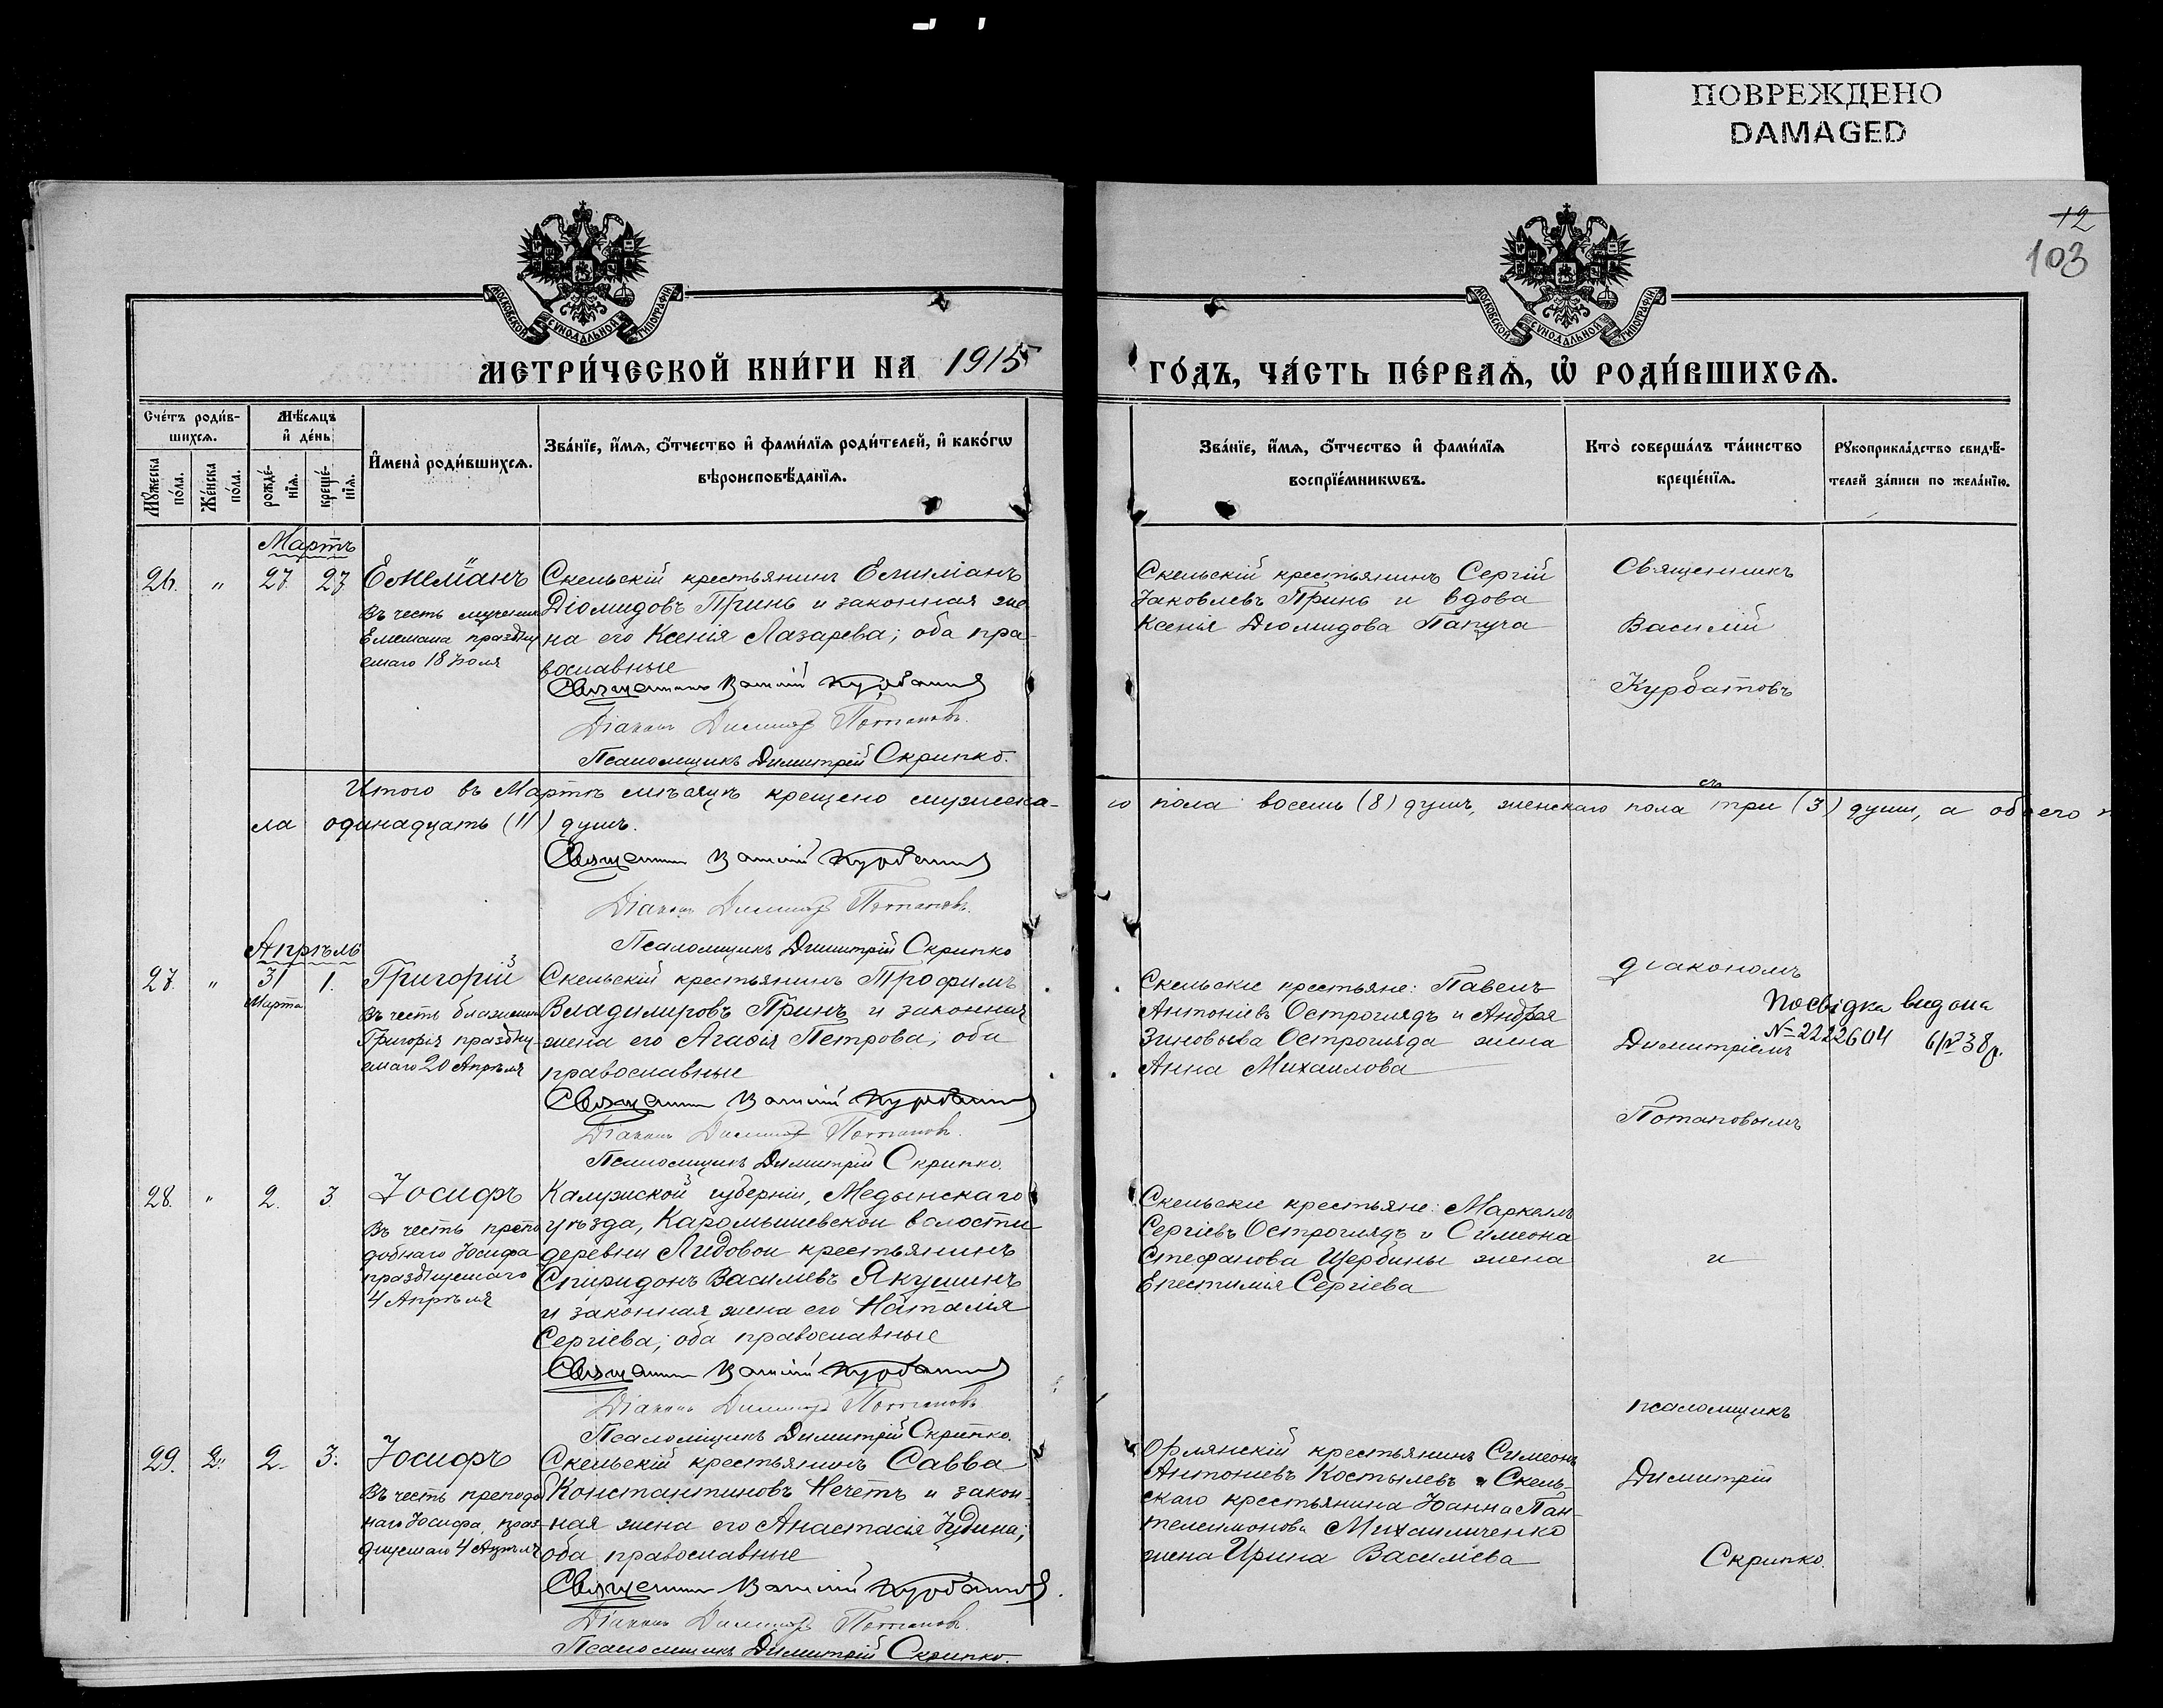 ПОВРЕЖДЕНО
DAMAGED
12
103
МОСКОВСКОЙ СѴНОДАЛЬНОЙ ТИПОГРАФІИ
МОСКОВСКОЙ СѴНОДАЛЬНОЙ ТИПОГРАФІИ
МЕТРИ́ЧЕСКОЙ КНИ́ГИ НА 1915
ГО́ДЪ, ЧА́СТЬ ПЕ́РВАѦ, Ѡ҆ РОДИ́ВШИХСѦ.
Сче́тъ роди́в-
шихсѧ.
Мѣ́сѧцъ
и҆ де́нь
Мꙋ́жеска
по́ла.
Же́нска
по́ла.
рожде́-
нїѧ.
креще́-
нїѧ.
И҆мена̀ роди́вшихсѧ.
Зва́нїе, и҆́мѧ, ѻ҆́тчество и҆ фами́лїѧ роди́телей, и҆ како́гѡ
вѣроисповѣ́данїѧ.
Зва́нїе, и҆́мѧ, ѻ҆́тчество и҆ фами́лїѧ
воспрїе́мникѡвъ.
Кто̀ соверша́лъ та́инство
креще́нїѧ.
Рꙋкоприкла́дство свидѣ́-
телей за́писи по жела́нїю.
Мартъ
26. " 27 27 Емеліанъ
Въ честь мученика
Емеліана праздну
емаго 18 Іюля
Скельскій крестьянинъ Емиліанъ
Діомидовъ Принь и законная же
на его Ксенія Лазарева; оба пра-
вославные
Священникъ Василій Курбатовъ
Діаконъ Димитрій Потаповъ.
Псаломщикъ Димитрій Скрипко.
Скельскій крестьянинъ Сергій
Іаковлевъ Принь и вдова
Ксенія Діомидова Папуча
Священникъ
Василій
Курбатовъ
Итого въ Мартѣ мѣсяцѣ крещено мужеска-
го пола восемь (8) душъ, женскаго пола три (3) души, а обоего п
ла одинадцать (11) душъ.
Священникъ Василій Курбатовъ
Діаконъ Димитрій Потаповъ.
Псаломщикъ Димитрій Скрипко
Апрѣль
27. " 31 1. Григорій
Марта
Въ честь блаженнаго
Григорія праздну-
емаго 20 Апрѣля
Скельскій крестьянинъ Трофимъ
Владимировъ Принь и законная
жена его Агафія Петрова; оба
православные
Священникъ Василій Курбатовъ
Діаконъ Димитрій Потаповъ.
Псаломщикъ Димитрій Скрипко.
Скельскіе крестьяне: Павелъ
Антоніевъ Остроглядъ и Андрея
Зиновьева Остроглядa жена
Анна Михаилова
діакономъ
Димитріемъ
Потаповымъ
Посвідка видана
№ 2222604
28. " 2. 3 Іосифъ
Въ честь препо
добнаго Іосифа
празднуемаго
4 Апрѣля
Калужской губерніи, Медынскаго
уѣзда, Каромышевской волости
деревни Лидовой крестьянинъ
Спиридонъ Василіевъ Якушинъ
и законная жена его Наталія
Сергіева; оба православные
Священникъ Василій Курбатовъ
Діаконъ Димитрій Потаповъ
Псаломщикъ Димитрій Скрипко.
Скельскіе крестьяне: Маркелъ
Сергіевъ Остроглядъ и Симеона
Стефанова Щербины жена
Епестимія Сергіева
и
псаломщикъ
29. 2. 3. Іосифъ
Въ честь преподоб
наго Іосифа, праз-
днуемаго 4 Апрѣля
Скельскій крестьянинъ Савва
Константиновъ Нечетъ и закон-
ная жена его Анастасія Іудина;
оба православные
Священникъ Василій Курбатовъ
Діаконъ Димитрій Потаповъ.
Псаломщикъ Димитрій Скрипко.
Орлянскій крестьянинъ Симеонъ
Антоніевъ Костылевъ и Скель-
скаго крестьянина Іоанна Пан-
телеимонова Михаиличенко
жена Ирина Василіева
Димитрій
Скрипко.